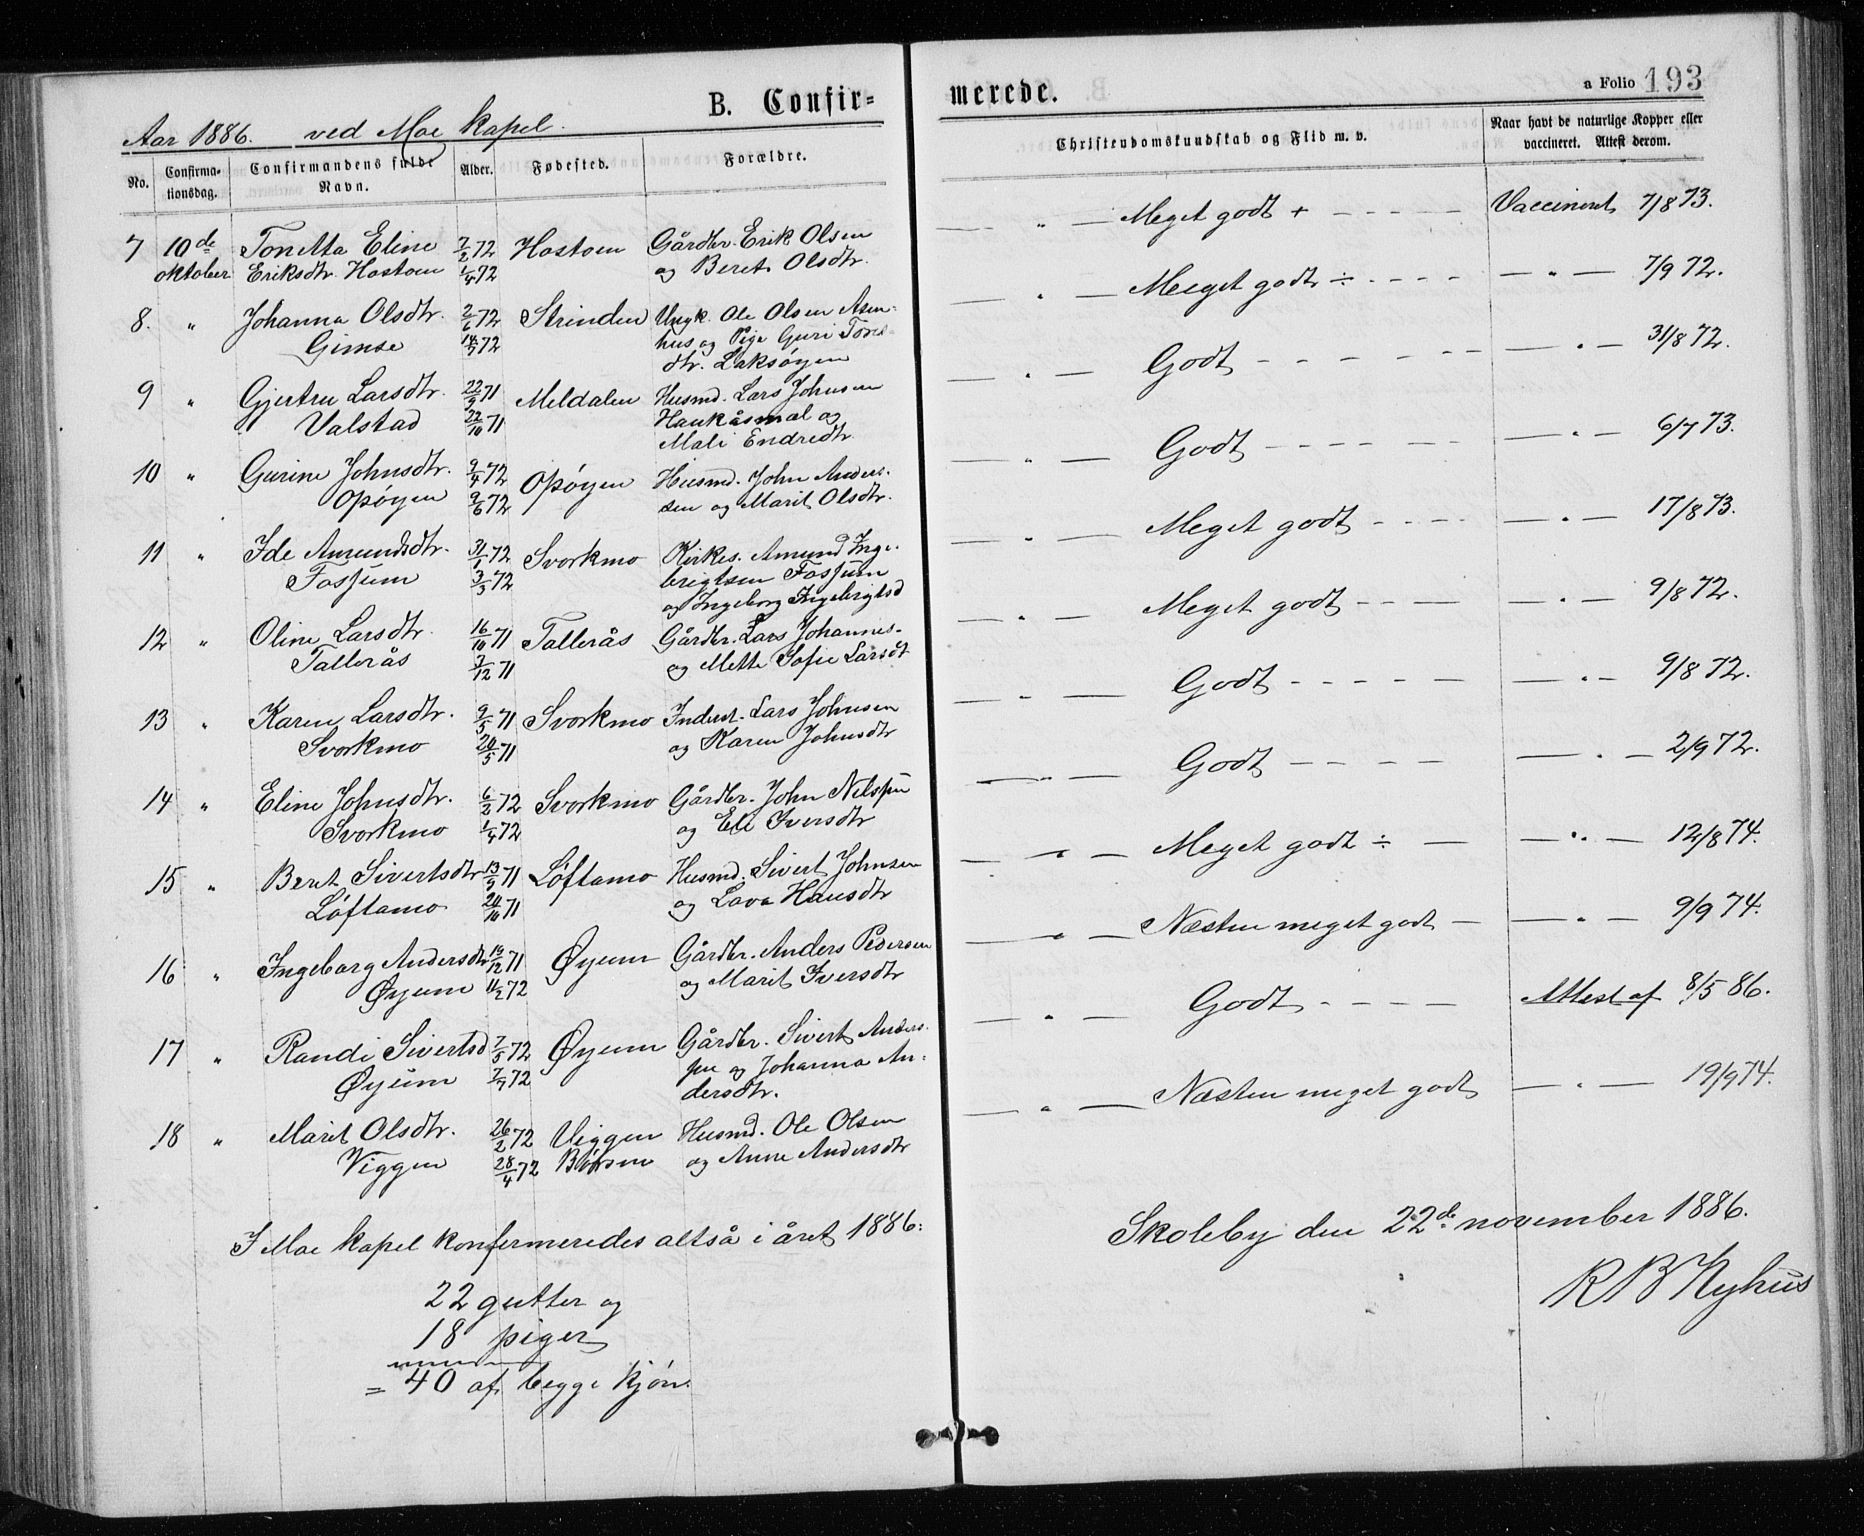 B. Confir=
merede.
a Folio 193
Aar 1886. ved Moe kapel.
No. Confirma-tionsdag. Confirmandens fulde Navn. Alder. Fødested. Forældre. Christendomskundskab og Flid m. v. Naar havt de naturlige Kopper eller vaccineret. Attest derom.
7 10de Tonetta Eline 7/2 72 Hostoen Gårdbr. Erik Olsen — " — Meget godt + - - - - Vaccineret 7/8 73.
oktober Eriksdtr. Hostoen 1/4 72 og Beret Olsdtr.
8. " Johanna Olsdtr. 2/6 72 Strinden Ungk. Ole Olsen Asen- — " — Meget godt ÷ - - - - — " — 7/9 72.
Gimse 14/7 72 hus og Pige Guri Tores-
dtr. Laksøyen
9 " Gjertru Larsdtr. 22/9 71 Meldalen Husmd. Lars Johnsen — " — Godt - - - - — " — 31/8 72.
Valstad 22/10 71 Haukåsmal og
Mali Endredtr.
10 " Gurine Johnsdtr. 9/4 72 Opøyen Husmd. John Anders- — " — Godt - - - - — " — 6/7 73.
Opøyen 9/6 72 sen og Marit Olsdtr.
11 " Ide Amundsdtr. 31/1 72 Svorkmo Kirkes. Amund Inge- — " — Meget godt - - - - — " — 17/8 73.
Fossum 3/3 72 brigtsen Fossum
og Ingeborg Ingebrigtsd
12 " Oline Larsdtr. 16/10 71 Tallerås Gårdbr. Lars Johannes- — " — Meget godt - - - — " — 9/8 72.
Tallerås 3/12 71 og Mette Sofie Larsdt
13 " Karen Larsdtr. 9/5 71 Svorkmo Inderst. Lars Johnsen — " — Godt - - - - — " — 9/8 72.
Svorkmo 29/5 71 og Karen Johnsdtr
14 " Eline Johnsdtr. 6/2 72 Svorkmo Gårdbr. John Nilssen — " — Godt - - - - — " — 2/9 72.
Svorkmo 1/4 72 og Eli Iversdtr
15 " Beret Sivertsdtr 13/9 71 Løftamo Husmd. Sivert Johnsen — " — Meget godt ÷ — — " — 12/8 74.
Løftamo 29/10 71 og Lava Hansdtr
16 " Ingeborg Andersdtr 19/12 71 Øyum Gårdbr. Anders Pedersen — " — Næsten meget godt — — " — 9/9 74.
Øyum 11/2 72 og Marit Iversdtr
17 " Randi Sivertsd 7/5 72 Øyum Gårdbr. Sivert Anders- — " — Godt - - - - Attest af 8/5 86.
Øyum 7/7 72 sen og Johanna An-
dersdtr.
18 " Marit Olsdtr. 26/2 72 Viggen Husmd. Ole Olsen — " — Næsten meget godt — " — 19/9 74.
Viggen 28/4 72 Børsen og Anne Andersdtr
I Moe kapel konfermeredes altså i året 1886:
22 gutter og
18 piger
= 40 af begge kjøn.
Skoleby den 22de november 1886.
R B Nyhus